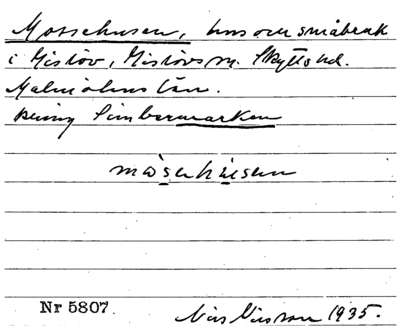 Mossehusen, hus och småbruk
i Gislöv, Gislövs sn. Skytts hd.
Malmöhus län.
kring Simbermarken
Nr 5807.
Nils Nilsson 1935.